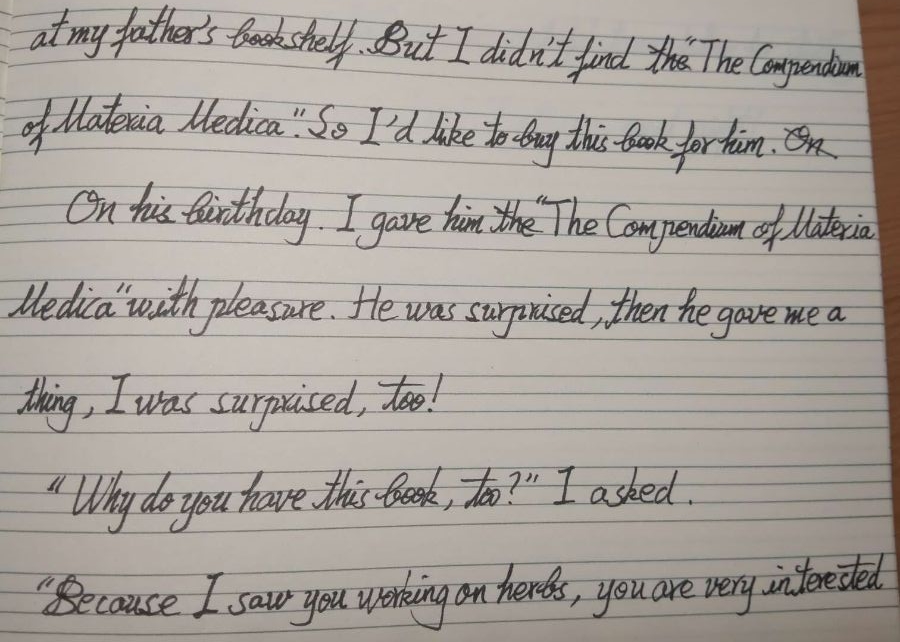 at my father's bookshelf. But I didn't find the "The Compendium
of Materia Medica". So I'd like to buy this book for him. On
On his birthday. I gave him the "The Compendium of Materia
Medica" with pleasure. He was surprised, then he gave me a
thing, I was surprised, too!
"Why do you have this book, too?" I asked.
"Because I saw you working on herbs, you are very interested